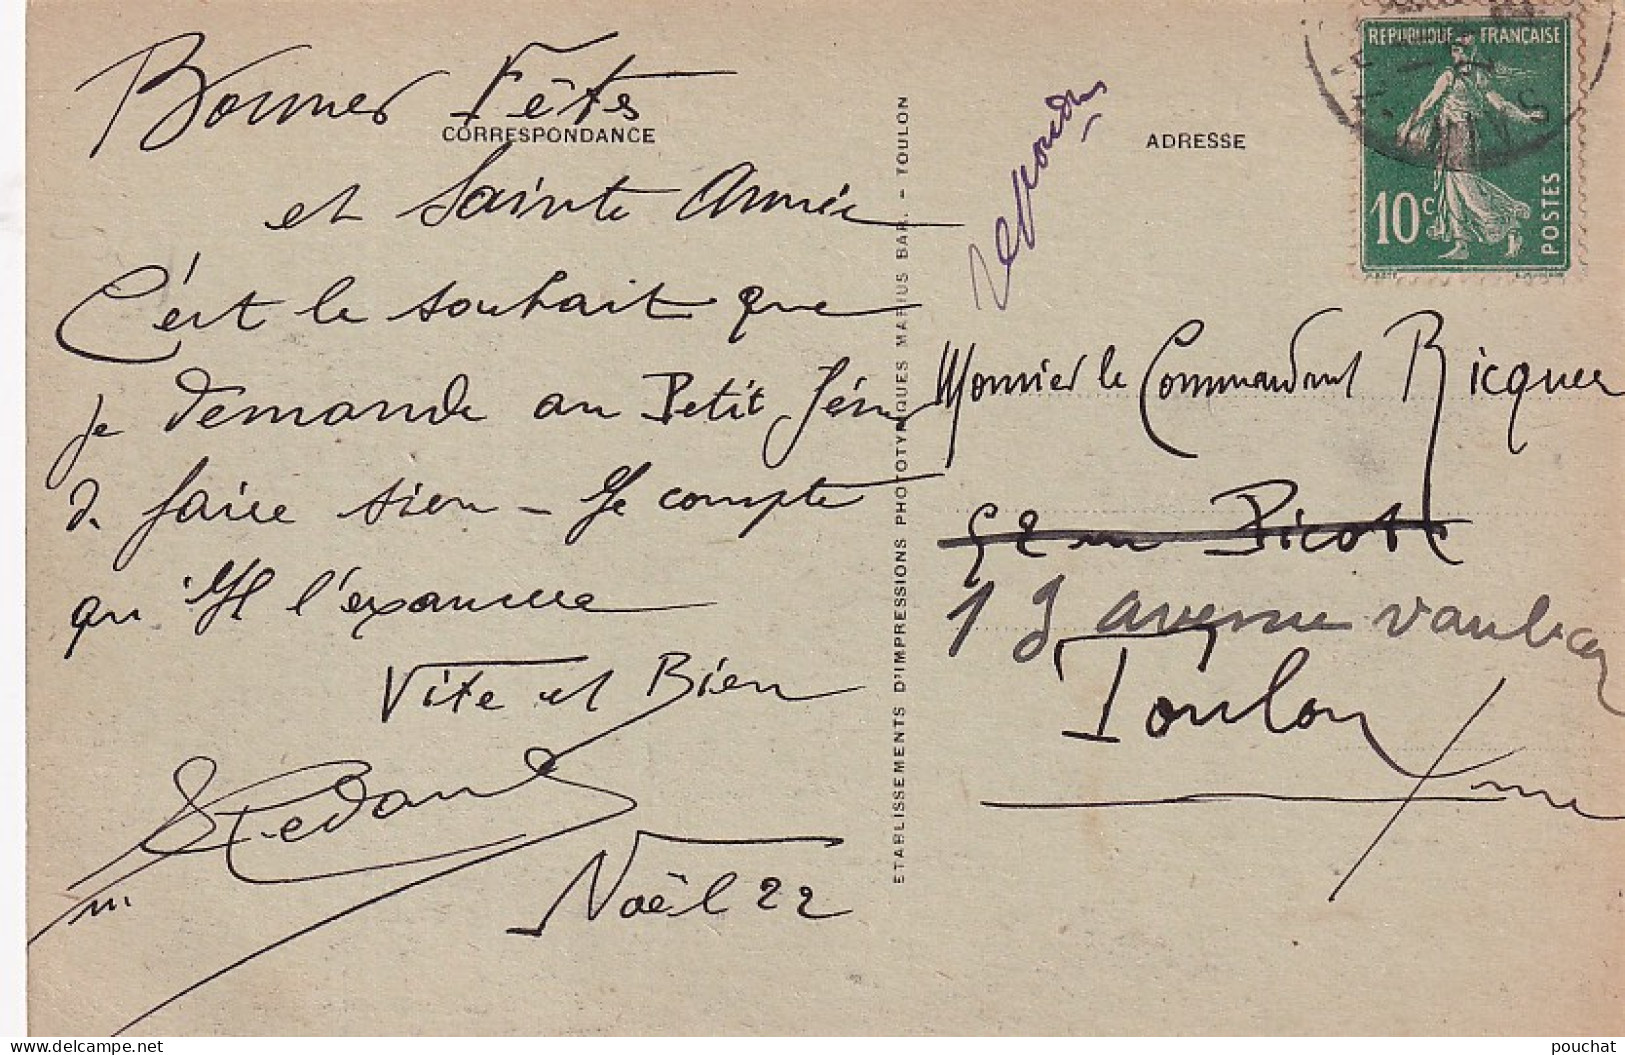 Bonnes Fêtes
CORRESPONDANCE
et Sainte Année
C'est le souhait que
je demande au Petit Jésus
de faire sien - Je compte
qu'Il l'examine
Vite et Bien
Noël 22
ETABLISSEMENTS D'IMPRESSIONS PHOTOTYPIQUES MARIUS BAR. - TOULON
repondu
ADRESSE
REPUBLIQUE FRANÇAISE
10c
POSTES
Monsieur le Commandant Ricquer
13 avenue Vauban
Toulon
pouchat